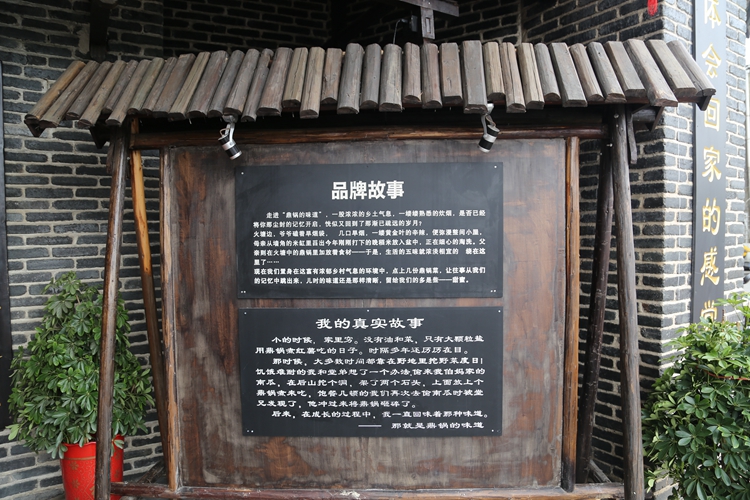 品牌故事
走进“鼎锅的味道”，一股浓浓的乡土气息，一缕缕熟悉的炊烟，是否已经
将你那尘封的记忆开启，恍似又回到了那渐已疏远的岁月？
火塘边，爷爷磕着旱烟袋， 几口旱烟，一缕黄金叶的辛辣，便弥漫整间小屋，
母亲从墙角的米缸里舀出今年刚刚打下的晚稻米放入盆中，正在细心的淘洗，父
亲则在火塘中的鼎锅里加放着食材——于是，生活的五味就浓淡相宜的 装在这
里了……
现在我们置身在这富有浓郁乡村气息的环境中，点上几份鼎锅菜，让往事从我们
的记忆中跳出来，儿时的味道还是那样清晰，留给我们的多是些——甜蜜。
我的真实故事
小的时候，家里穷。没有油和菜，只有大颗粒盐
用鼎锅煮红薯吃的日子。时隔多年还历历在目。
那时候，大多数时间都靠在野地里挖野菜度日！
饥饿难耐的我和堂弟想了一个办法，偷来我伯妈家的
南瓜，在后山挖个洞，架了两个石头，上面放上个
鼎锅煮来吃，饱餐几顿的我们再次去偷南瓜时被堂
兄发现了，他冲过来将鼎锅砸碎了。
后来，在成长的过程中，我一直回味着那种味道。
—— 那就是鼎锅的味道
会回家的感觉